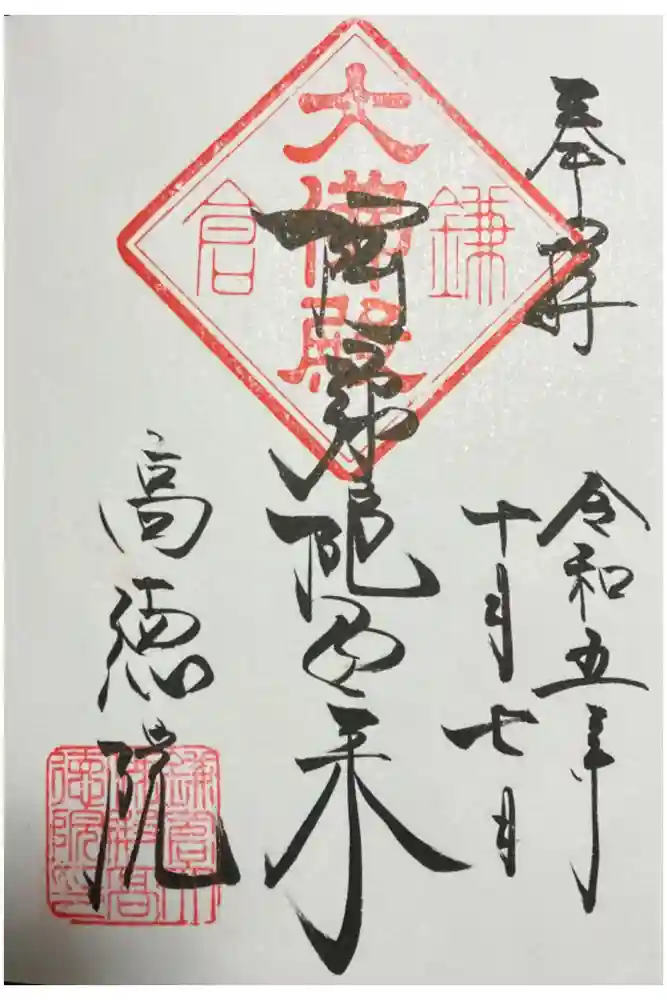 奉拝
令和五年
十月七日
鎌
大佛殿
倉
阿弥陀如来
高徳院
鎌倉大
佛殿高
徳院印